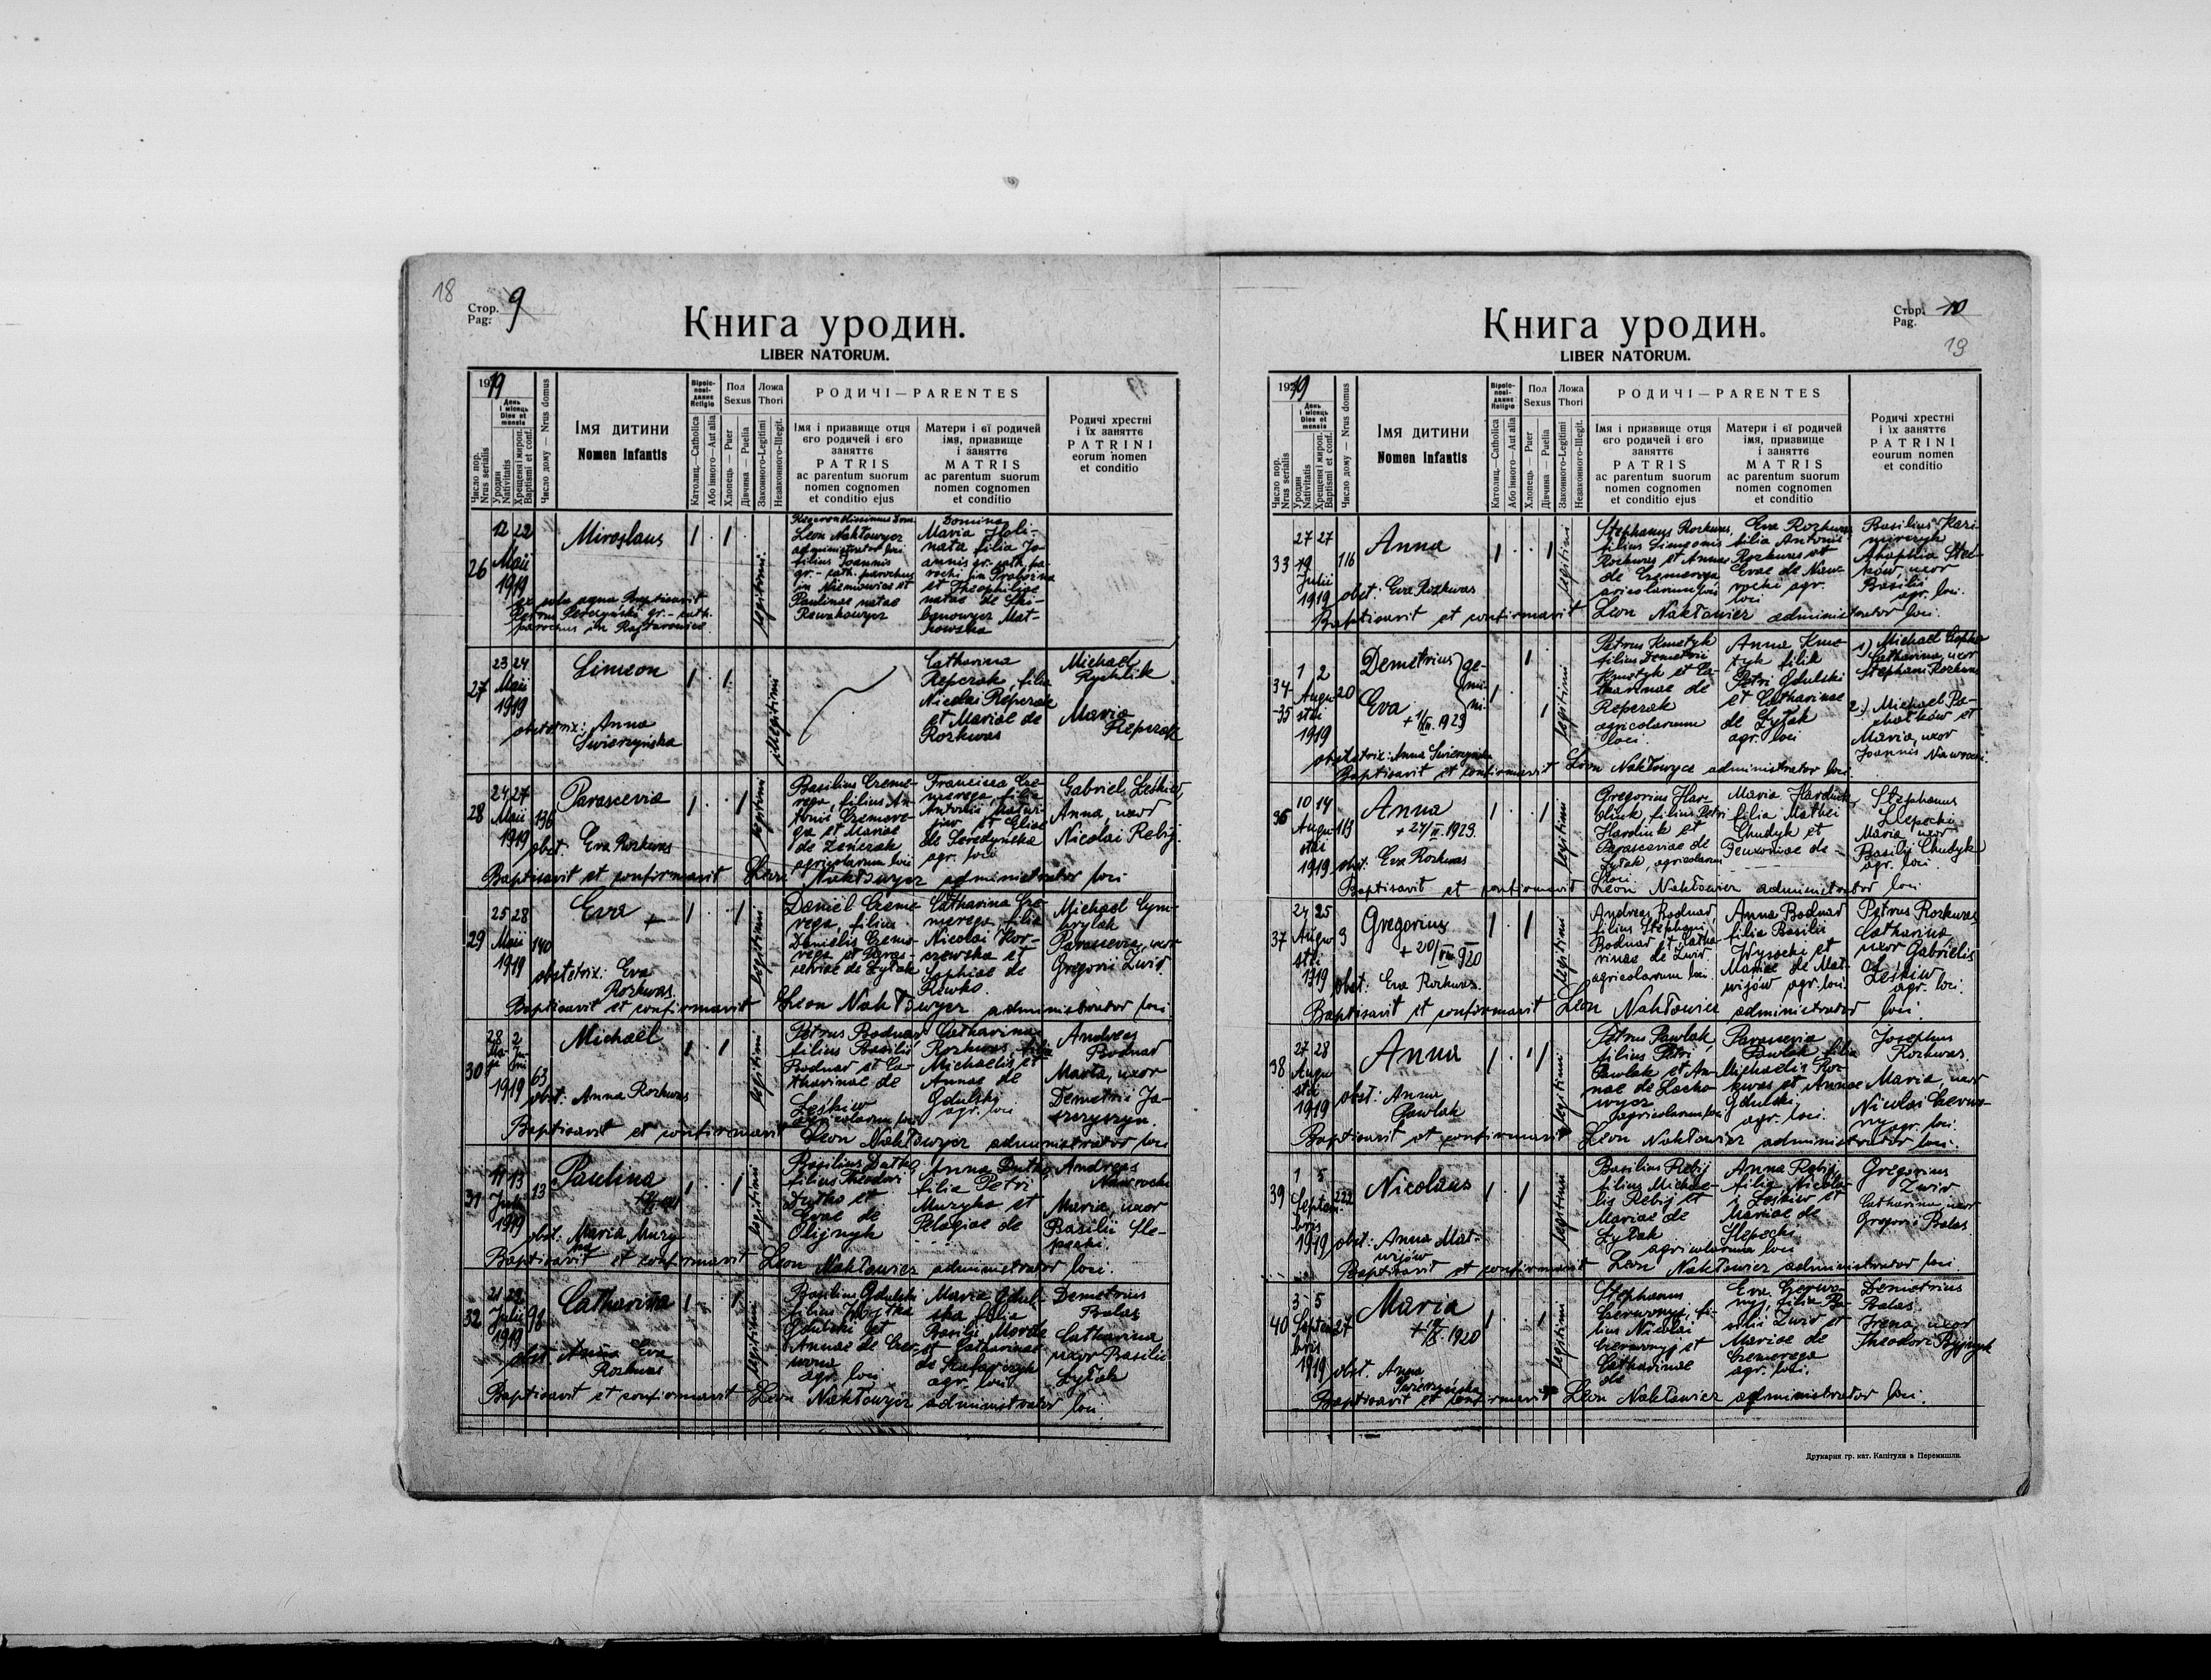 18
Стор. 9
Pag.
Книга уродин.
LIBER NATORUM.
1919
Число пор.
Nrus serialis
День і місяць
Dies et mensis
Уродин
Nativitatis
Хрещеня і миропом.
Baptismi et conf.
Число дому — Nrus domus
Імя дитини
Nomen Infantis
Віроісповіданє
Religio
Католиц.—Catholica
Або інного—Aut alia
Пол
Sexus
Хлопець — Puer
Дівчина — Puella
Ложа
Thori
Законного-Legitimi
Незаконного-Illegit.
РОДИЧІ — PARENTES
Імя і призвище отця
єго родичей і єго
занятє
PATRIS
ac parentum suorum
nomen cognomen
et conditio ejus
Матери і єї родичей
імя, призвище
і занятє
MATRIS
ac parentum suorum
nomen cognomen
et conditio
Родичі хрестні
і їх занятє
PATRINI
eorum nomen
et conditio
26
12 22
Maii
1919
Miroslaus
1 . 1 .
legitimi
Leon Nakłowycz
administrator loci
filius Joannis
gr.-cath. parochus
in Niemowice et
Paulinae natae
Nowakowycz
Domina
Maria Holi-
nata filia Jo-
annis gr. cath. pa-
rochi in
et Theophiliae
natae de
kowska
ex sola aqua Baptisavit
gr.-cath.
parochus in
27
23 24
Maii
1919
Simeon
1 . 1
illegitimi
Catharina
Repczak, filia
Nicolai Repczak
et Mariae de
Rozkwas
Michael
Rychlik
Maria
Repczak
obstetrix: Anna
Świerzyńska
28
24 27
Maii
1919
136
Parascevia
1 . . 1
legitimi
Basilius Creme-
rega, filius An-
tonii Cremere-
ga et Mariae
de Zenczak
agricolarum loci
Francisca Cre-
merega, filia
Antonii
de Seredyńska
agr. loci
Gabriel Leśkiw,
Anna, uxor
Nicolai Rebij
obst. Eva Rozkwas
Baptisavit et confirmavit Leon Nakłowycz administrator loci
29
25 28
Maii
1919
140
Eva +
1 . . 1
legitimi
Daniel Creme-
rega, filius
Danielis Creme-
rega et Paras-
ceviae de Zytak
Catharina Cre-
merega, filia
Nicolai Kor-
czewska et
Sophiae de
Rewko.
Michael Cym-
brylak
Parascevia, uxor
Gregorii Zwir
obstetrix: Eva
Rozkwas
Baptisavit et confirmavit Leon Nakłowycz administrator loci
30
28 2
1919
63
Michaël
1 . 1
legitimi
Petrus Bodnar,
filius Basilii
Bodnar et Ca-
tharinae de
Leśkiw
agricolarum loci
Catharina
Rozkwas, filia
Michaelis et
Annae de
Gdulski
agr. loci
Andreas
Bodnar
Marta, uxor
Demetrii Ja-
szczyszyn.
obst: Anna Rozkwas
Baptisavit et confirmavit Leon Nakłowycz administrator loci
31
11 13
1919
13
Paulina
1 . . 1
legitimi
Basilius Dutko,
filius Theodori
Dutko et
Evae de
Olijnyk
Anna Dutko,
filia Petri
Muzyka et
Pelagiae de
Andreas
Nawrocki
Maria, uxor
Basilii Sle-
pecki.
obst: Maria Muzy-
ka
Baptisavit et confirmavit Leon Nakłowicz administrator loci.
32
21 22
Julii
1919
98
Catharina
1 . . 1
legitimi
Basilius Gdulski
filius Wojtka
Gdulski et
Annae de
agr. loci
Maria Gdul-
ska filia
Basilii
et Catharinae
de
agr. loci
Demetrius
Balas
Catharina
uxor Basilii
Zytak
obst. Anna Eva
Rozkwas
Baptisavit et confirmavit Leon Nakłowycz administrator loci.
Стор. 10
Pag.
19
Книга уродин.
LIBER NATORUM.
1919
Число пор.
Nrus serialis
День і місяць
Dies et mensis
Уродин
Nativitatis
Хрещеня і миропом.
Baptismi et conf.
Число дому — Nrus domus
Імя дитини
Nomen Infantis
Віроісповіданє
Religio
Католиц.—Catholica
Або інного—Aut alia
Пол
Sexus
Хлопець — Puer
Дівчина — Puella
Ложа
Thori
Законного-Legitimi
Незаконного-Illegit.
РОДИЧІ — PARENTES
Імя і призвище отця
єго родичей і єго
занятє
PATRIS
ac parentum suorum
nomen cognomen
et conditio ejus
Матери і єї родичей
імя, призвище
і занятє
MATRIS
ac parentum suorum
nomen cognomen
et conditio
Родичі хрестні
і їх занятє
PATRINI
eourum nomen
et conditio
33
27 27
Julii
1919
116
Anna
1 . . 1
legitimi
Stephanus Rozkwas,
filius Simeonis
Rozkwas et Annae
de Cremerega
agricolarum loci
Eva Rozkwas
filia Antonii
Rozkwas et
Evae de Naw-
rocki agr.
loci
Basilius Kazi-
mirczyk
Ahaphia Stad-
ków, uxor
Basilii
agr. loci.
obst: Eva Rozkwas
Baptisavit et confirmavit Leon Nakłowicz administrator loci.
34-
-35
1 2
Augu-
sti
1919
20
Demetrius
Eva
gemini
+ 1/III. 1923
1 1
1
legitimi
Petrus Kmetyk
filius Demetrii
Kmetyk et Ca-
tharinae de
Repczak
agricolarum
loci.
Anna Kme-
tyk filia
Petri Gdulski
et Catharinae
de Zytak
agr. loci
1) Michael
Catharina, uxor
Stephani Rozkwas
2) Michael Pa-
et
Maria, uxor
Joannis Nawrocki.
obstetrix: Anna Świerzyńska
Baptisavit et confirmavit Leon Nakłowycz administrator loci
36
10 14
Augu-
sti
1919
119
Anna
+ 27/II. 1923.
1 . . 1
legitimi
Gregorius Har-
diuk, filius Petri
Hardiuk et
Parasceviae de
Zytak, agricolarum
loci.
Maria Hardiuk,
filia Mathei
Chudyk et
Teuxoniae de -
Stephanus
Slepecki
Maria uxor
Basilii Chudyk
agr. loci
obst: Eva Rozkwas
Baptisavit et confirmavit Leon Nakłowicz administrator loci
37
24 25
Augu-
sti
1919
9
Gregorius
+ 20/VIII 920
1 . 1
legitimi
Andreas Bodnar,
filius Stephani
Bodnar et Catha-
rinae de Zwir.
agricolarum loci.
Anna Bodnar
filia Basilii
Wysocki et
Mariae de Mat-
wijów agr. loci.
Petrus Rozkwas
Catharina
uxor Gabrielis
Leśkiw
agr. loci.
obst: Eva Rozkwas.
Baptisavit et confirmavit Leon Nakłowicz administrator loci.
38
27 28
Augu-
sti
1919
Anna
1 . 1
legitimi
Petrus Pawlak,
filius Petri
Pawlak et An-
nae de Lacho-
wycz
agricolarum loci
Parascevia
Pawlak filia
Michaelis Roz-
kwas et Annae
Gdulski
agr. loci.
Josephus
Rozkwas.
Maria, uxor
Nicolai Czerwo-
nyj agr. loci.
obst: Anna
Pawlak
Baptisavit et confirmavit Leon Nakłowicz administrator loci.
39
1 5
Septem-
bris
1919
222
Nicolaus
1 . 1
legitimi
Basilius Rebij
filius Michae-
lis Rebij et
Mariae de
Zytak
Anna Rebij,
filia Nicola-
i Leśkiw et
Mariae de
Slepecki
agricolarum loci
Gregorius
Zwir
Catharina, uxor
Gregorii Balas
obst: Anna Mat-
wijów
Baptisavit et confirmavit Leon Nakłowicz administrator loci.
40
3 5
Septem-
bris
1919
27
Maria
1 . . 1
legitimi
Stephanus
Czerwonyj, fi-
lius Nicolai
Czerwonyj et
Catharinae
de
Eva Czerwo-
nyj, filia Ba-
silii Zwir et
Mariae de
Cremerega
agr. loci.
Demetrius
Balas
Irena, uxor
Theodori
obst. Anna
Świerzyńska
Baptisavit et confirmavit Leon Nakłowicz administrator loci.
Друкарня гр. кат. Капітули в Перемишли.